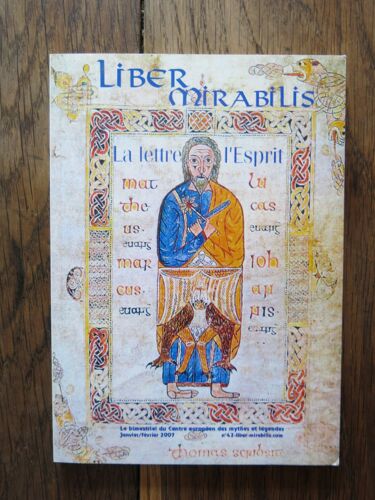 LIBER
MIRABILIS
La lettre l'Esprit
mat
the
us.
mar
cus.
lu
cas.
ioh
an
nis.
Le bimestriel du Centre européen des mythes et légendes
Janvier/février 2007
n°43-liber-mirabilis.com
thomas scribsit